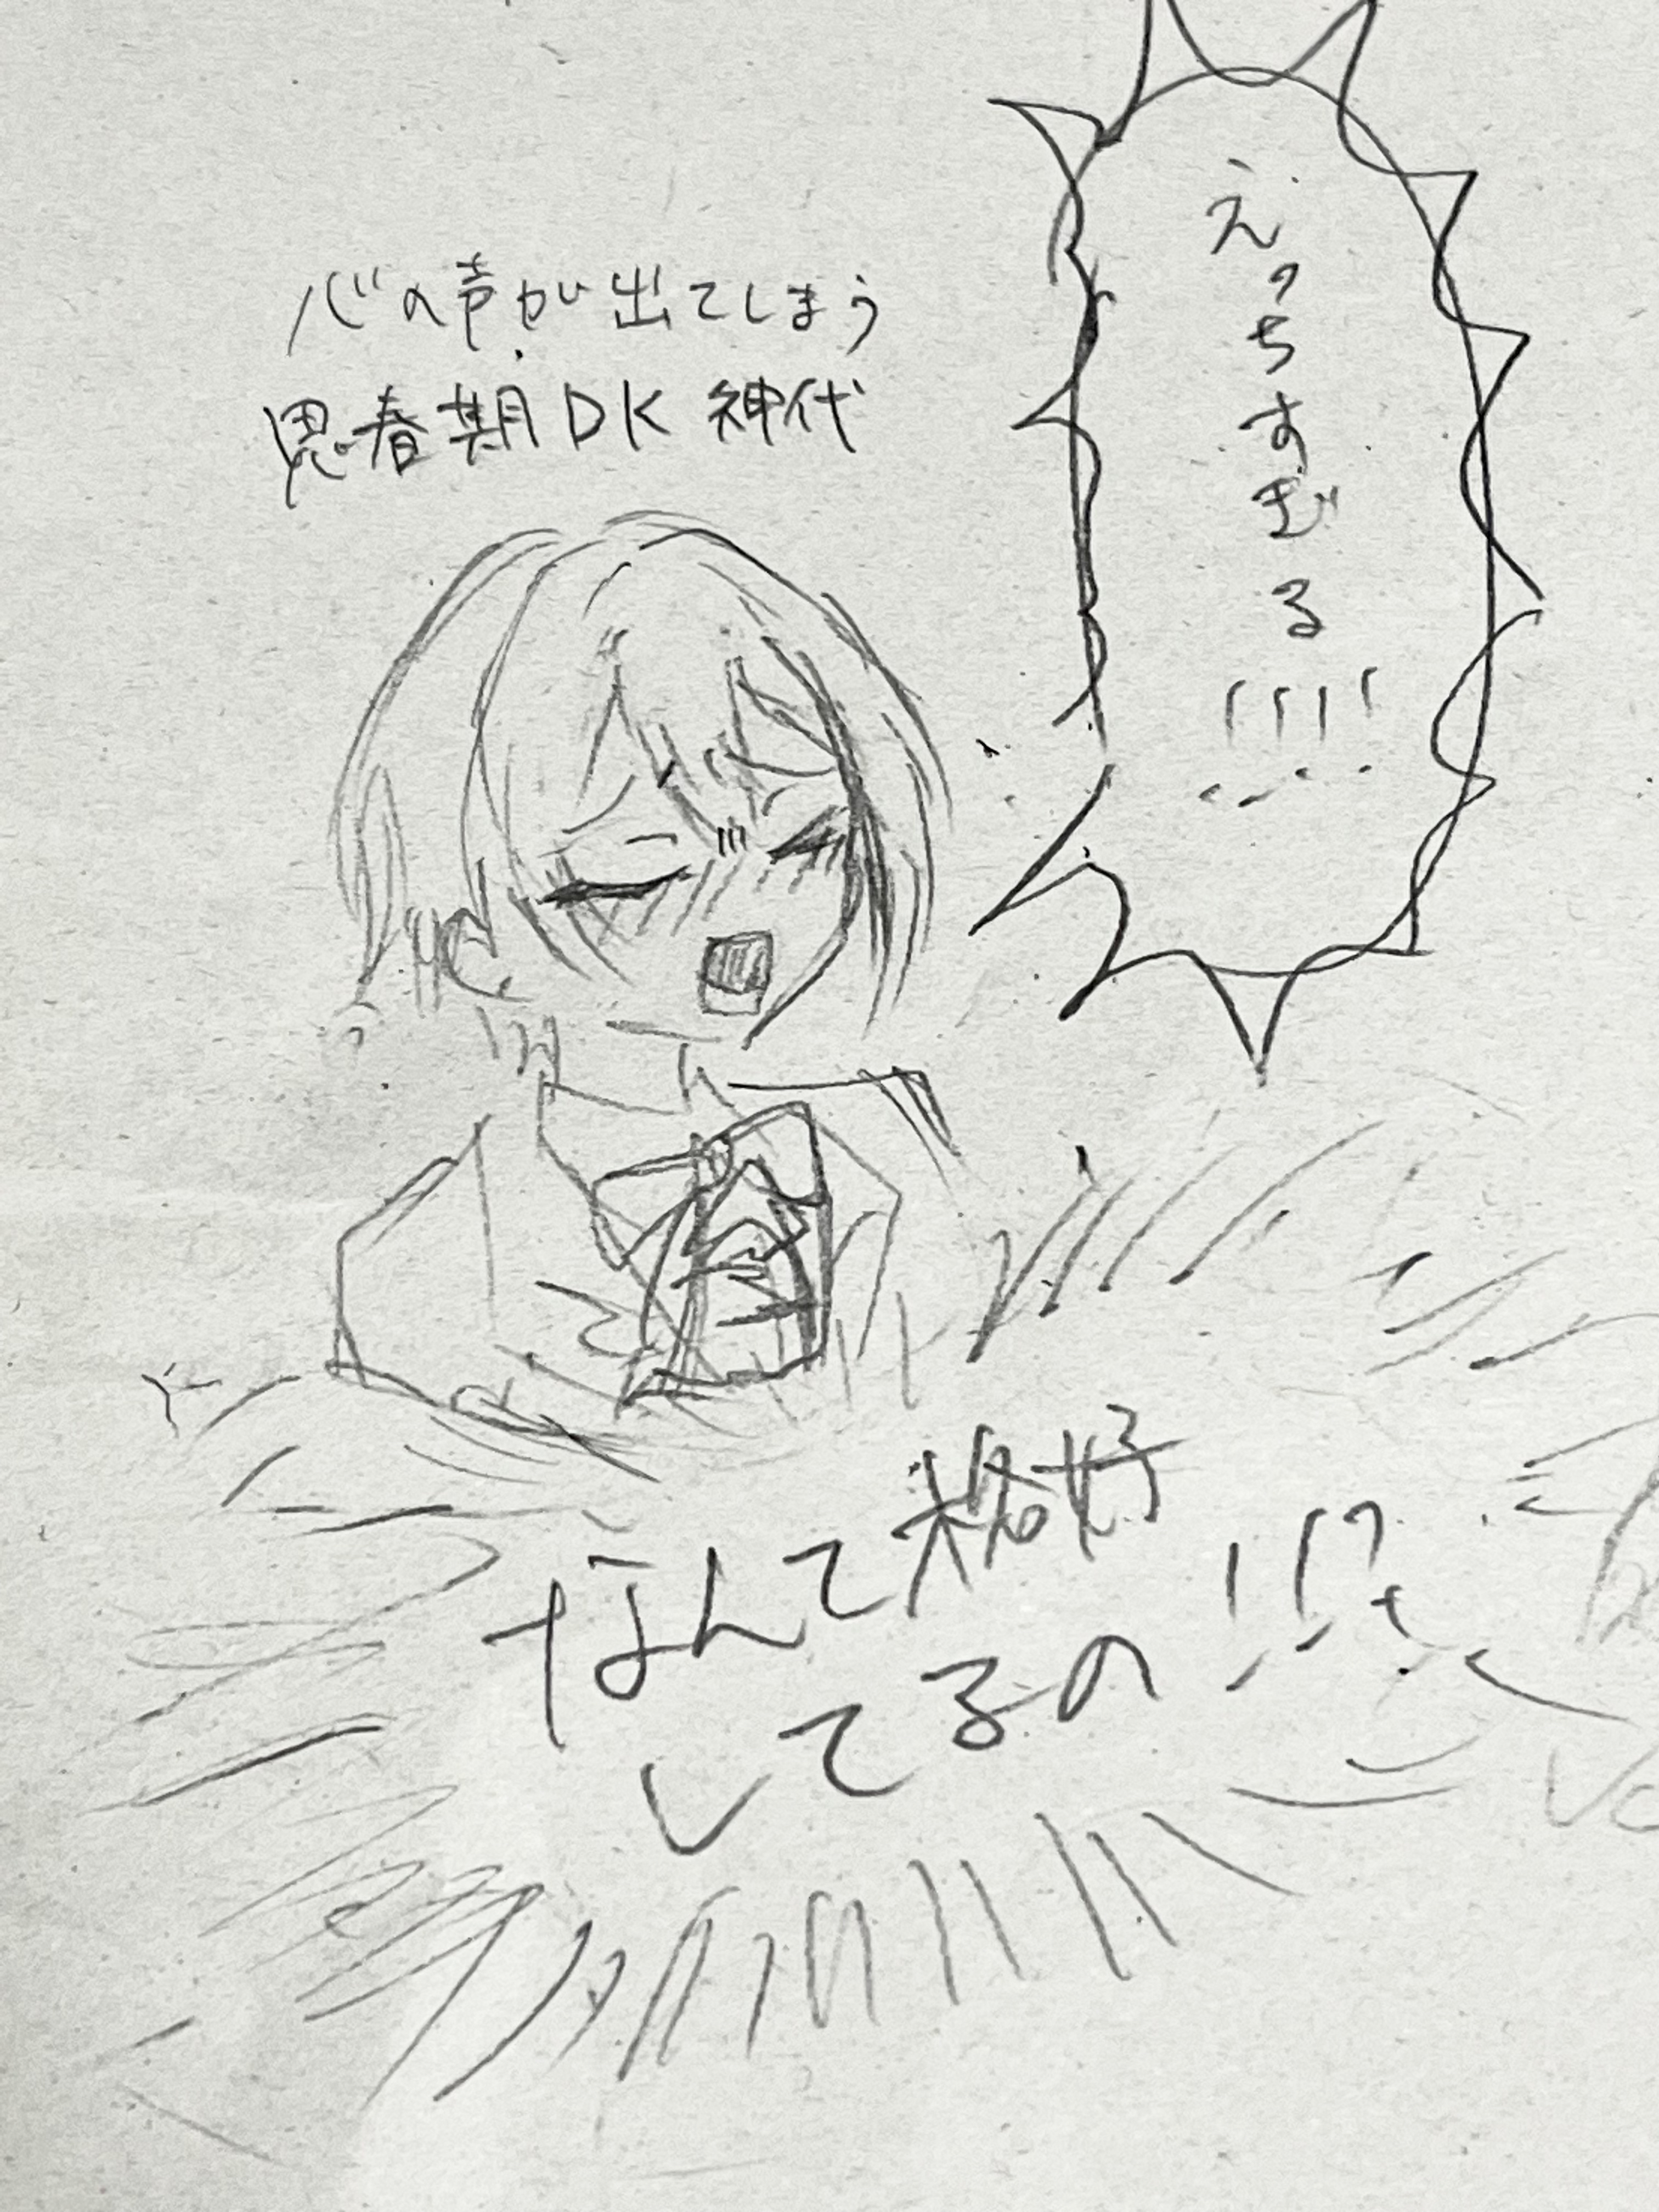 えっちすぎる!!!!
心の声が出てしまう
思春期DK神代
なんて格好
してるの!!?